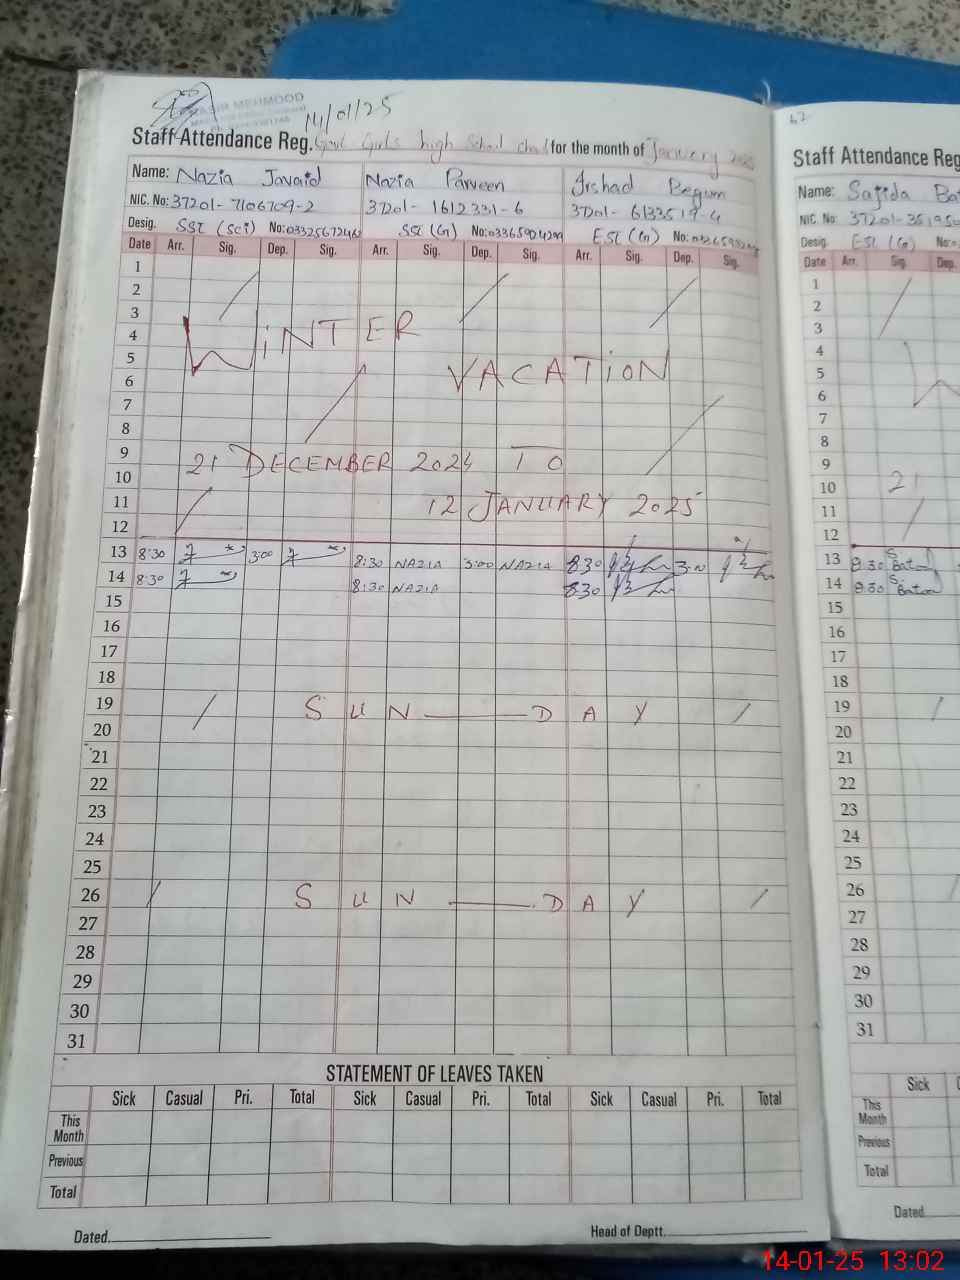 MEHMOOD
14/01/25
62
Staff Attendance Reg. Govt Girls high School for the month of January 2025
Name: Nazia Javaid Nazia Parveen Irshad Begum
NIC. No: 37201-7106709-2 37201-1612331-6 37201-6133519-4
Desig. SST (Sci) No: 03325672460 SST (G) No: EST (G) No:
Date Arr. Sig. Dep. Sig. Arr. Sig. Dep. Sig. Arr. Sig. Dep. Sig.
1
2
3
4 WiNTER
5 VACATiON
6
7
8
9 21 DECEMBER 2024 TO
10
11 12 JANUARY 2025
12
13 8:30 3:00 8:30 NAZIA 3:00 NAZIA 8:30 3:00
14 8:30 8:30 NAZIA 8:30
15
16
17
18
19 SUN DAY
20
21
22
23
24
25
26 SUN DAY
27
28
29
30
31
STATEMENT OF LEAVES TAKEN
Sick Casual Pri. Total Sick Casual Pri. Total Sick Casual Pri. Total
This Month
Previous
Total
Dated. Head of Deptt.
Staff Attendance Reg
Name: Sajida Bat
NIC. No: 37201-35195
Desig. EST (G) No:
Date Arr. Sig. Dep.
1
2
3
4
5
6
7
8
9
10 21
11
12
13 8:30 S. Batool
14 8:30 S. Batool
15
16
17
18
19
20
21
22
23
24
25
26
27
28
29
30
31
Sick
This Month
Previous
Total
Dated.
14-01-25 13:02